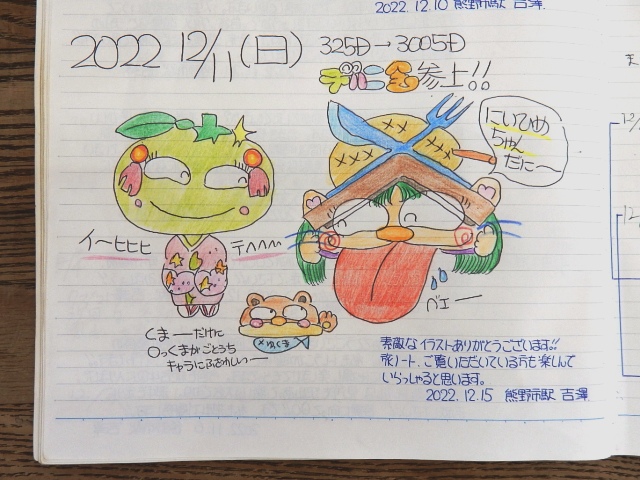 2022.12.10 熊野市駅 吉澤
2022 12/11(日) 325D→3005D
参上!!
にいひめ
ちゃん
だにー
イーヒヒヒ
テヘヘヘ
ベエー
くまーだけに
○っくまがごとうち
キャラにふさわしいー
ゆくま
素敵なイラストありがとうございます!!
旅ノート、ご覧いただいている方も楽しんで
いらっしゃると思います。
2022.12.15 熊野市駅 吉澤